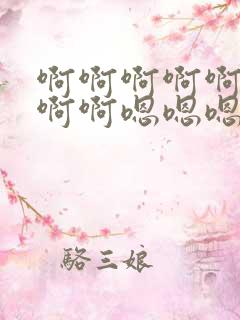 啊啊啊啊啊
啊啊嗯嗯嗯
駱三娘